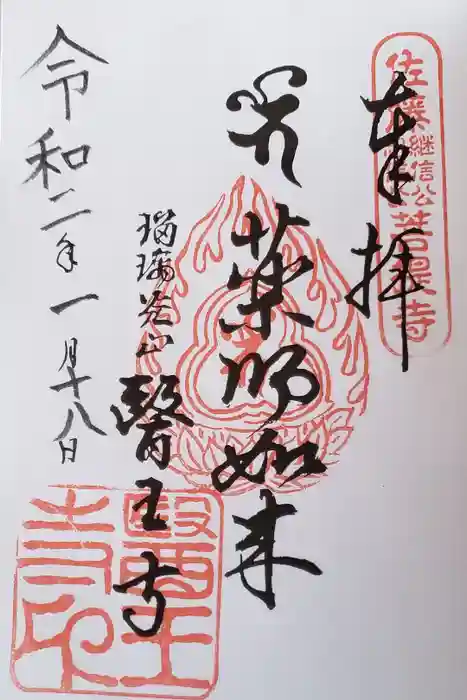 奉拝
佐藤継信公菩提寺
薬師如来
瑠璃光山
醫王寺
令和二年一月十八日
醫王寺印